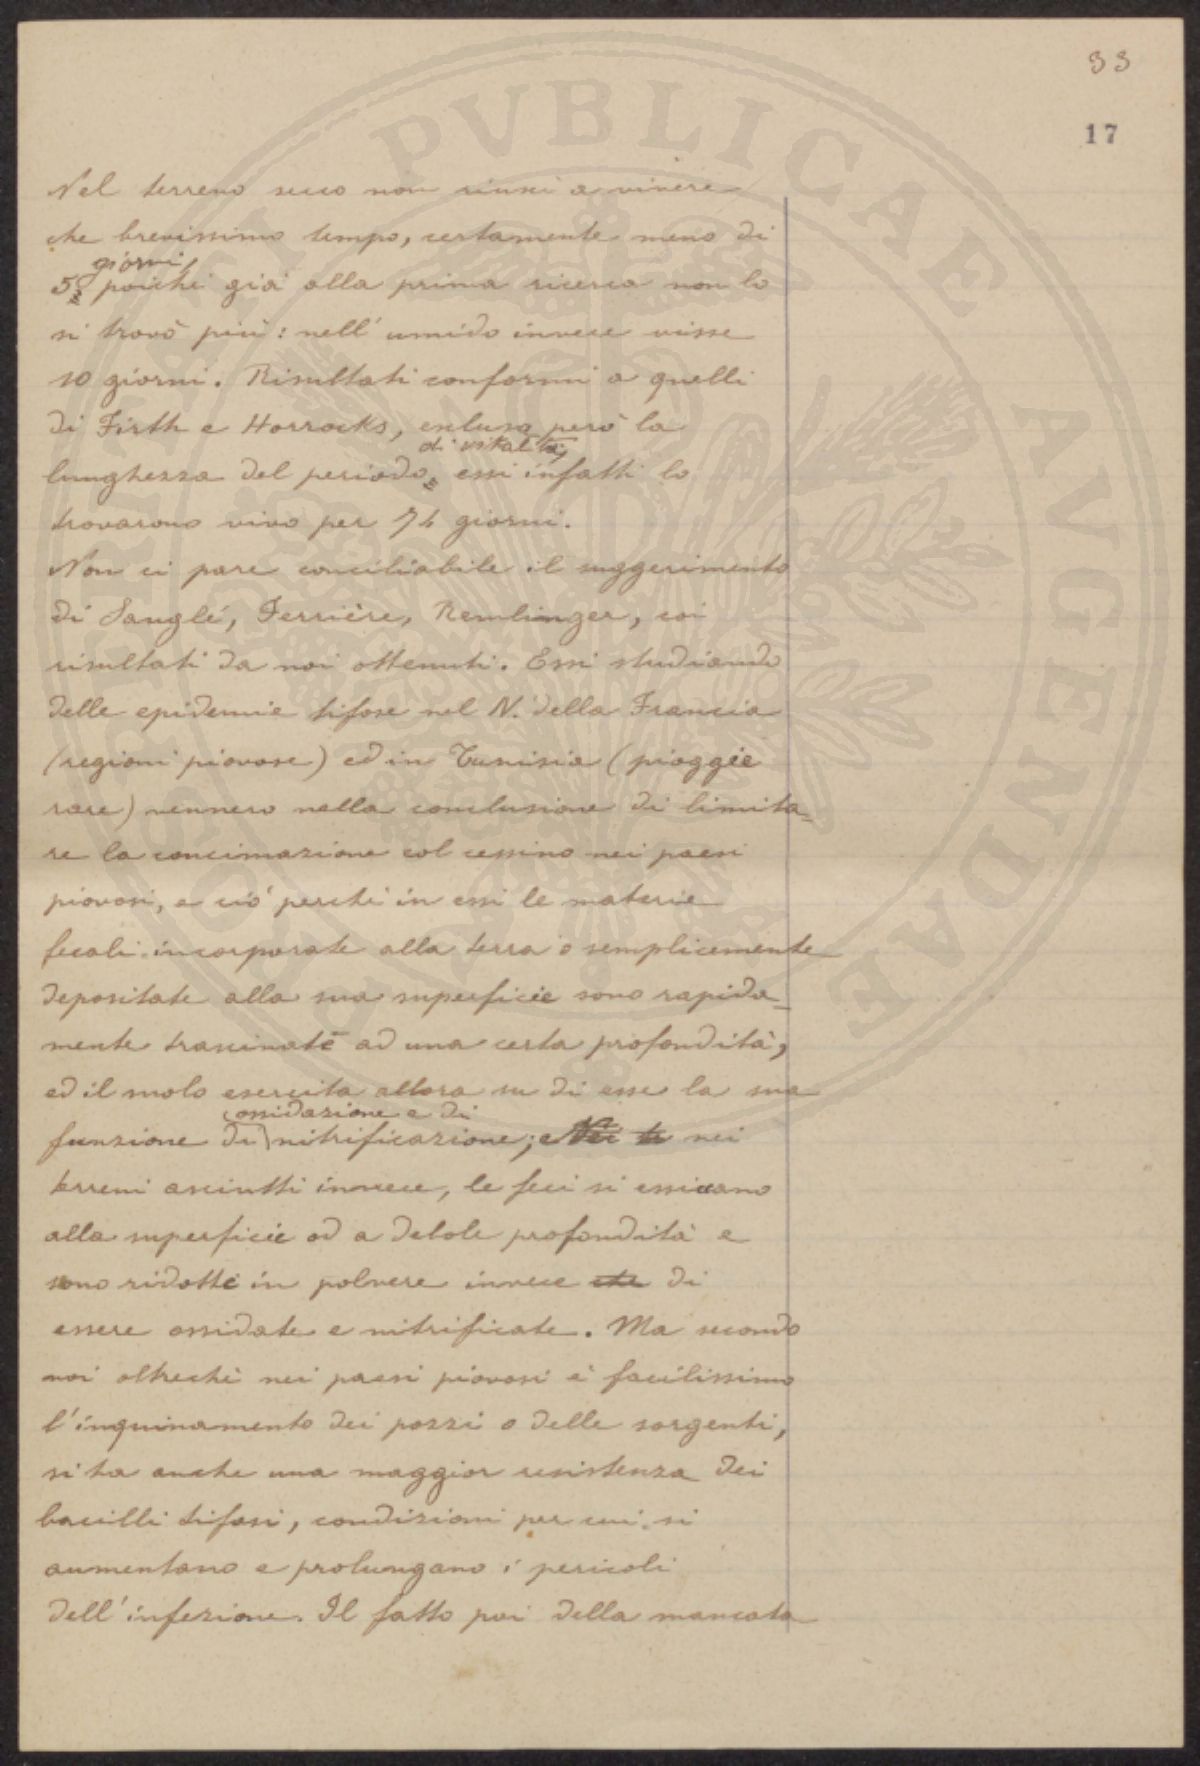 33
17
Nel terreno secco non riuscì a vivere
che brevissimo tempo, certamente meno di
giorni,
5 poiché già alla prima ricerca non lo
si trovò più: nell'umido invece visse
10 giorni. Risultati conformi a quelli
di Firth e Horrocks, esclusa però la
di vitalità,
lunghezza del periodo essi infatti lo
trovarono vivo per 74 giorni.
Non ci pare conciliabile il suggerimento
di Sanglé, Ferrière, Remlinger, coi
risultati da noi ottenuti. Essi studiando
delle epidemie tifose nel N. della Francia
(regioni piovose) ed in Tunisia (pioggie
rare) vennero nella conclusione di limita=
re la concimazione col cessino nei paesi
piovosi, e ciò perché in essi le materie
fecali incorporate alla terra o semplicemente
depositate alla sua superficie sono rapida=
mente trascinate ad una certa profondità,
ed il suolo esercita allora su di esse la sua
ossidazione e di
funzione di nitrificazione; nei
terreni asciutti invece, le feci si essicano
alla superficie od a debole profondità e
sono ridotte in polvere invece che di
essere ossidate e nitrificate. Ma secondo
noi oltreché nei paesi piovosi è facilissimo
l'inquinamento dei pozzi o delle sorgenti,
si ha anche una maggior resistenza dei
bacilli tifosi, condizioni per cui si
aumentano e prolungano i pericoli
dell'infezione. Il fatto poi della mancata
PVBLICAE AVGENDAE